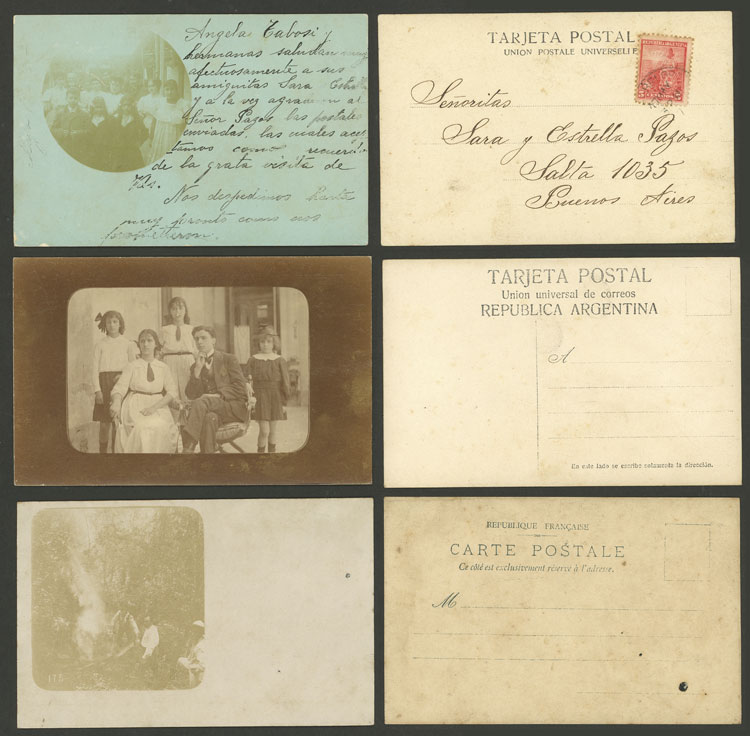 Angela Cabosi y
hermanas saludan muy
afectuosamente a sus
amiguitas Sara
y a la vez agradecen al
Señor Pazos las postales
enviadas, las cuales acep
tamos como recuerdo
de la grata visita de
Nos despedimos hasta
muy pronto como nos
prometieron.
TARJETA POSTAL
UNION POSTALE UNIVERSELLE
Señoritas
Sara y Estrella Pazos
Salta 1035
Buenos Aires
TARJETA POSTAL
Union universal de correos
REPUBLICA ARGENTINA
A
En este lado se escribe solamente la dirección.
175
REPUBLIQUE FRANÇAISE
CARTE POSTALE
Ce côté est exclusivement réservé à l'adresse.
M